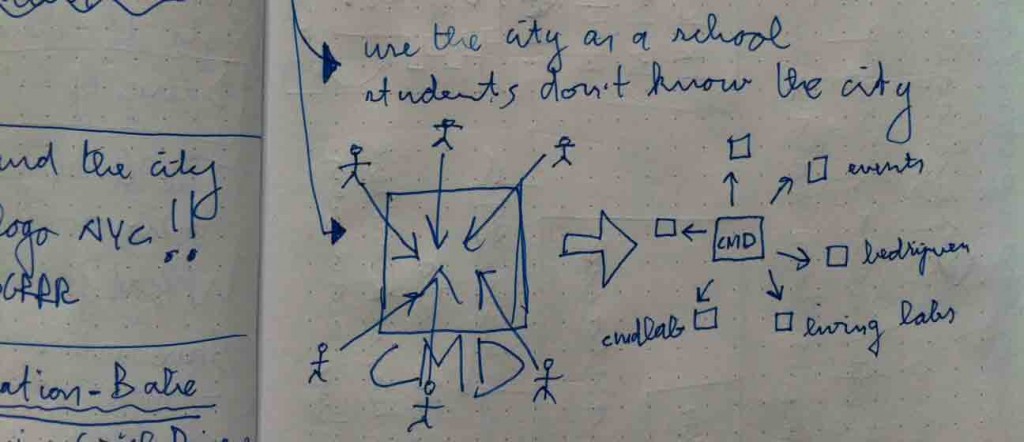 and the city
logo NYC !!
ation-Bake
use the city as a school
students don't know the city
CMD
CMD
events
bedrijven
living labs
cmdlab